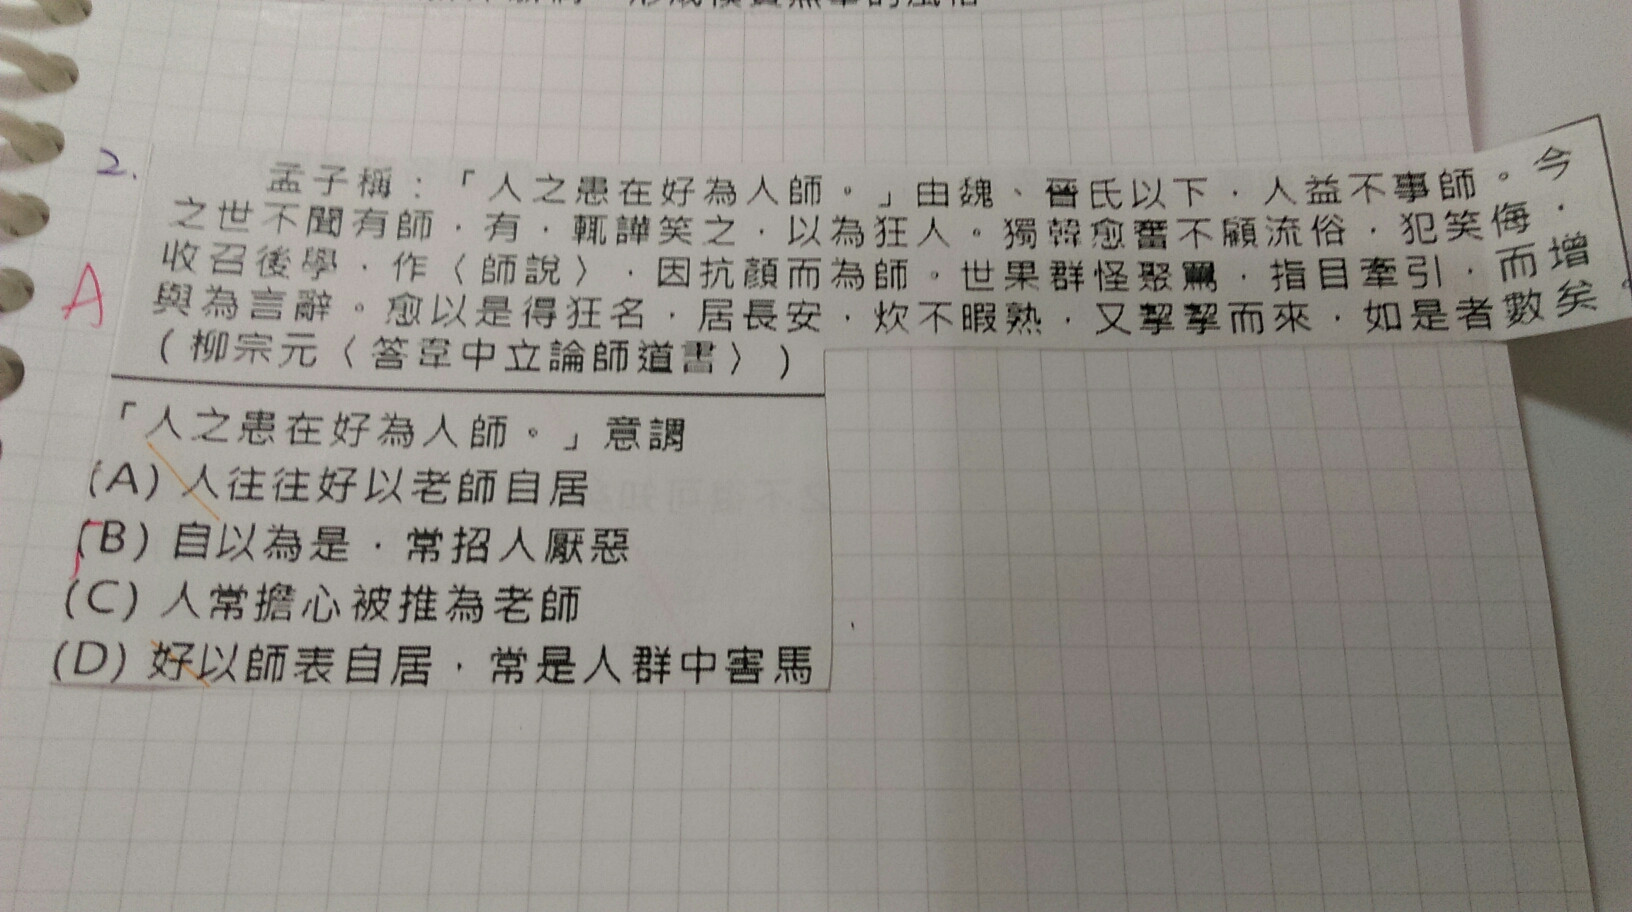 2.
孟子稱：「人之患在好為人師。」由魏、晉氏以下，人益不事師。今
之世不聞有師，有，輒譁笑之，以為狂人。獨韓愈奮不顧流俗，犯笑侮，
收召後學，作〈師說〉，因抗顏而為師。世果群怪聚罵，指目牽引，而增
與為言辭。愈以是得狂名，居長安，炊不暇熟，又挈挈而來，如是者數矣。
（柳宗元〈答韋中立論師道書〉）
A
「人之患在好為人師。」意謂
(A) 人往往好以老師自居
(B) 自以為是，常招人厭惡
(C) 人常擔心被推為老師
(D) 好以師表自居，常是人群中害馬